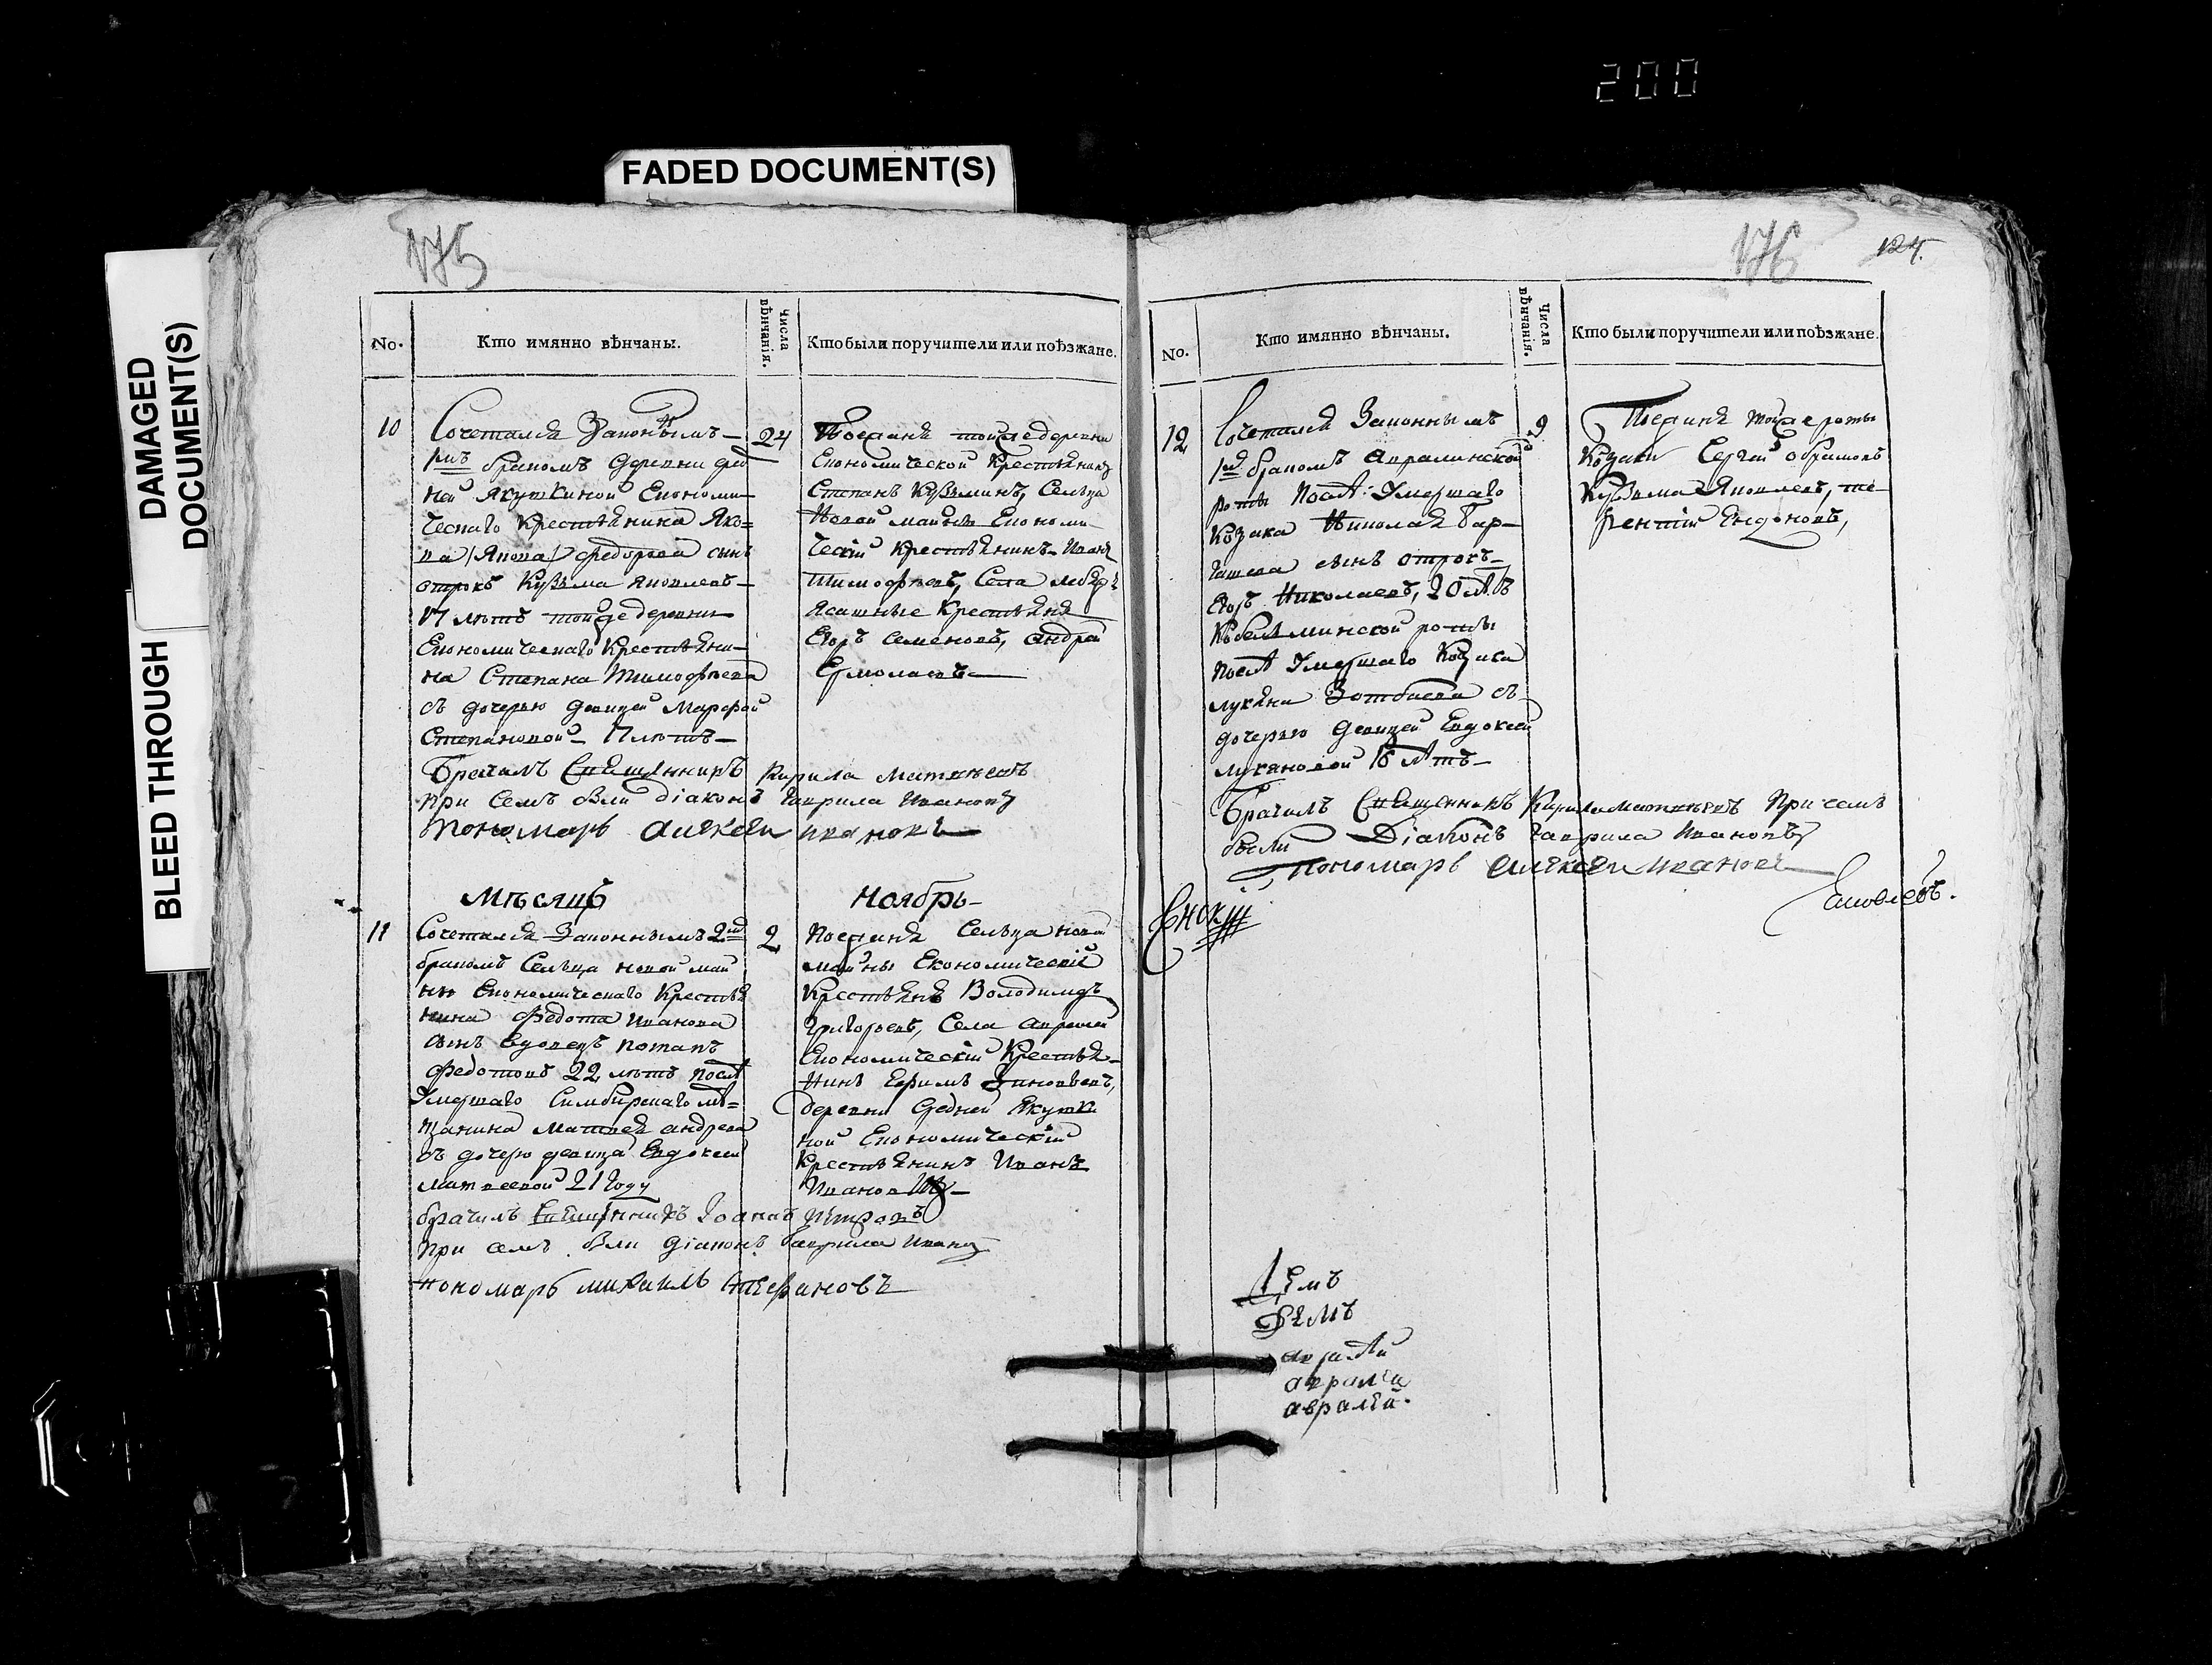 200
FADED DOCUMENT(S)
DAMAGED
DOCUMENT(S)
BLEED THROUGH
175
No.
Кто имянно вѣнчаны.
Числа
вѣнчанія.
Кто были поручители или поѣзжане.
10
Сочетался Законнымъ
1мъ бракомъ деревни
ней Якушкиной Економи
ческаго Крестьянина Яко=
ва (Якова) федорова сынъ
отрокъ Кузьма Яковлевъ
17 лѣтъ тойже деревни
Економическаго Крестьяни-
на Степана Тимофѣева
съ дочерью девицей Марфой
Степановой 17 лѣтъ
24
Поезжаня тойже деревни
Економической Крестьянинъ
Степанъ Кузьминъ, Сельца
Новой майны Економи
ческій крестьянинъ Иванъ
Тимофѣевъ, Села
Ясашные Крестьяня
Егоръ Семеновъ, андрей
Ермолаевъ
Брачилъ Священникъ Кирила Матвѣевъ
при семъ были діаконъ Гаврила Ивановъ
пономарь алексеи ивановъ
Мѣсяцъ Ноябрь
11
Сочетался Законнымъ 2мъ
бракомъ Сельца новой май
ны Економическаго Крестья
нина Федота Иванова
сынъ вдовецъ потапъ
Федотовъ 22 лѣтъ послѣ
Умершаго Симбирскаго мѣ=
щанина Матвея андреева
съ дочерю девица Евдокеей
матвеевой 21 году
2
Поезжаня Сельца новой
майны Економическій
Крестьянъ Володимеръ
Григорьевъ, Села авралей
Економическій Крестья-
нинъ Ефимъ Зиновьевъ,
деревни Средней Якушки
ной Економическій
Крестьянинъ Иванъ
Ивановъ
брачилъ Священникъ Іоаннъ Петровъ
при семъ были діаконъ Гаврила Ивановъ
пономарь михаилъ Стефановъ
176
124.
No.
Кто имянно вѣнчаны.
Числа
вѣнчанія.
Кто были поручители или поѣзжане.
12
Сочетался Законнымъ
1мъ бракомъ Авралинской
роты послѣ Умершаго
Козака Николая
сынъ отрокъ
Егоръ Николаевъ, 20 лѣтъ
роты
послѣ Умершаго Козака
лукяна съ
дочерью девицей Евдокеей
лукяновой 18 лѣтъ
9
Поезжаня тойже роты
Козаки Сергей обрамовъ
Кузьма Яковлевъ, те-
рентій
Брачилъ Священникъ Кирила Матвѣевъ При семъ
были Діаконъ Гаврила Ивановъ
пономарь алексеи Ивановъ
авралей
авралей
авралей.